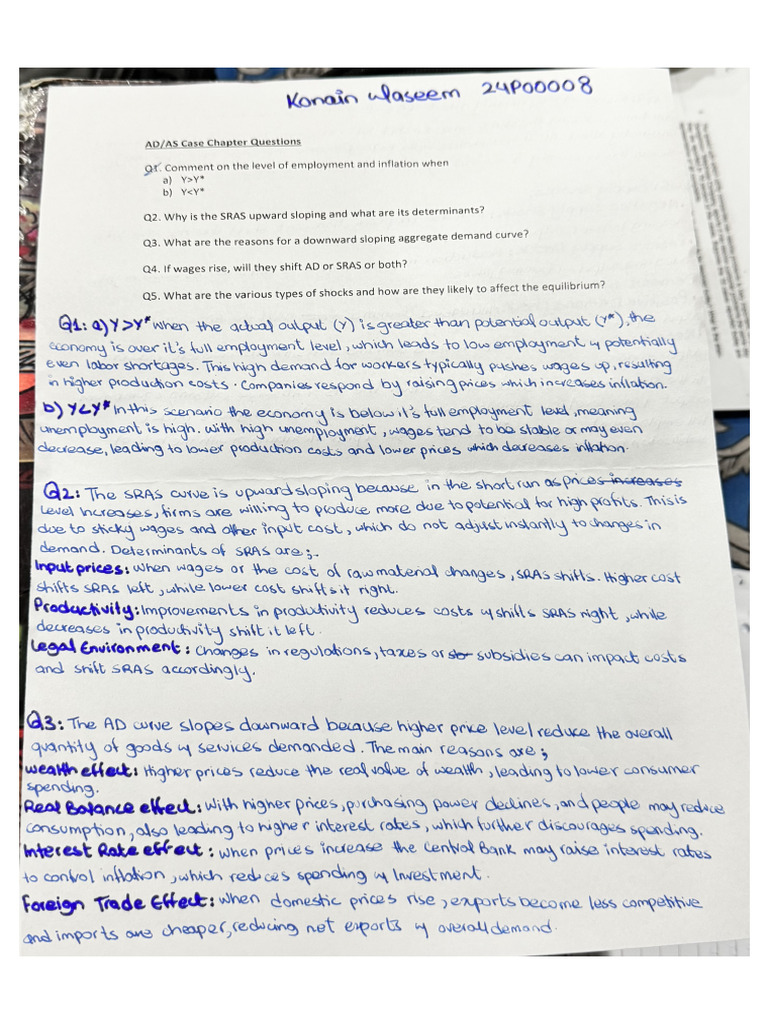 Konain Waseem 24P00008
AD/AS Case Chapter Questions
Q1. Comment on the level of employment and inflation when
a) Y>Y*
b) Y<Y*
Q2. Why is the SRAS upward sloping and what are its determinants?
Q3. What are the reasons for a downward sloping aggregate demand curve?
Q4. If wages rise, will they shift AD or SRAS or both?
Q5. What are the various types of shocks and how are they likely to affect the equilibrium?
Q1: a) Y>Y* when the actual output (Y) is greater than potential output (Y*), the
economy is over it's full employment level, which leads to low employment & potentially
even labor shortages. This high demand for workers typically pushes wages up, resulting
in higher production costs. Companies respond by raising prices which increases inflation.
b) Y<Y* In this scenario the economy is below it's full employment level, meaning
unemployment is high. With high unemployment, wages tend to be stable or may even
decrease, leading to lower production costs and lower prices which decreases inflation.
Q2: The SRAS curve is upward sloping because in the short run as prices increases
level increases, firms are willing to produce more due to potential for high profits. This is
due to sticky wages and other input cost, which do not adjust instantly to changes in
demand. Determinants of SRAS are;.
Input prices: When wages or the cost of raw material changes, SRAS shifts. Higher cost
shifts SRAS left, while lower cost shifts it right.
Productivity: Improvements in productivity reduces costs & shifts SRAS right, while
decreases in productivity shift it left.
Legal Environment: Changes in regulations, taxes or sub subsidies can impact costs
and shift SRAS accordingly.
Q3: The AD curve slopes downward because higher price level reduce the overall
quantity of goods & services demanded. The main reasons are;
Wealth effect: Higher prices reduce the real value of wealth, leading to lower consumer
spending.
Real Balance effect: With higher prices, purchasing power declines, and people may reduce
consumption, also leading to higher interest rates, which further discourages spending.
Interest Rate effect: When prices increase the Central Bank may raise interest rates
to control inflation, which reduces spending & Investment.
Foreign Trade Effect: When domestic prices rise, exports become less competitive
and imports are cheaper, reducing net exports & overall demand.